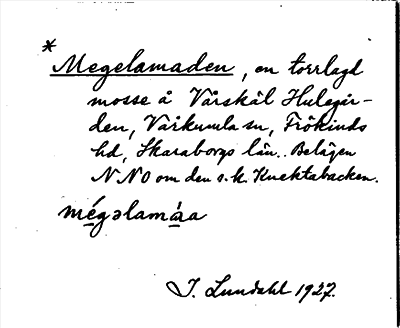 *
Megelamaden, en torrlagd
mosse å Vårskäl Hulegår-
den, Vårkumla sn, Frökinds
hd, Skaraborgs län.. Belägen
NNO om den s.k. Knektabacken.
mégəlamá̱a
J. Lundahl 1927.